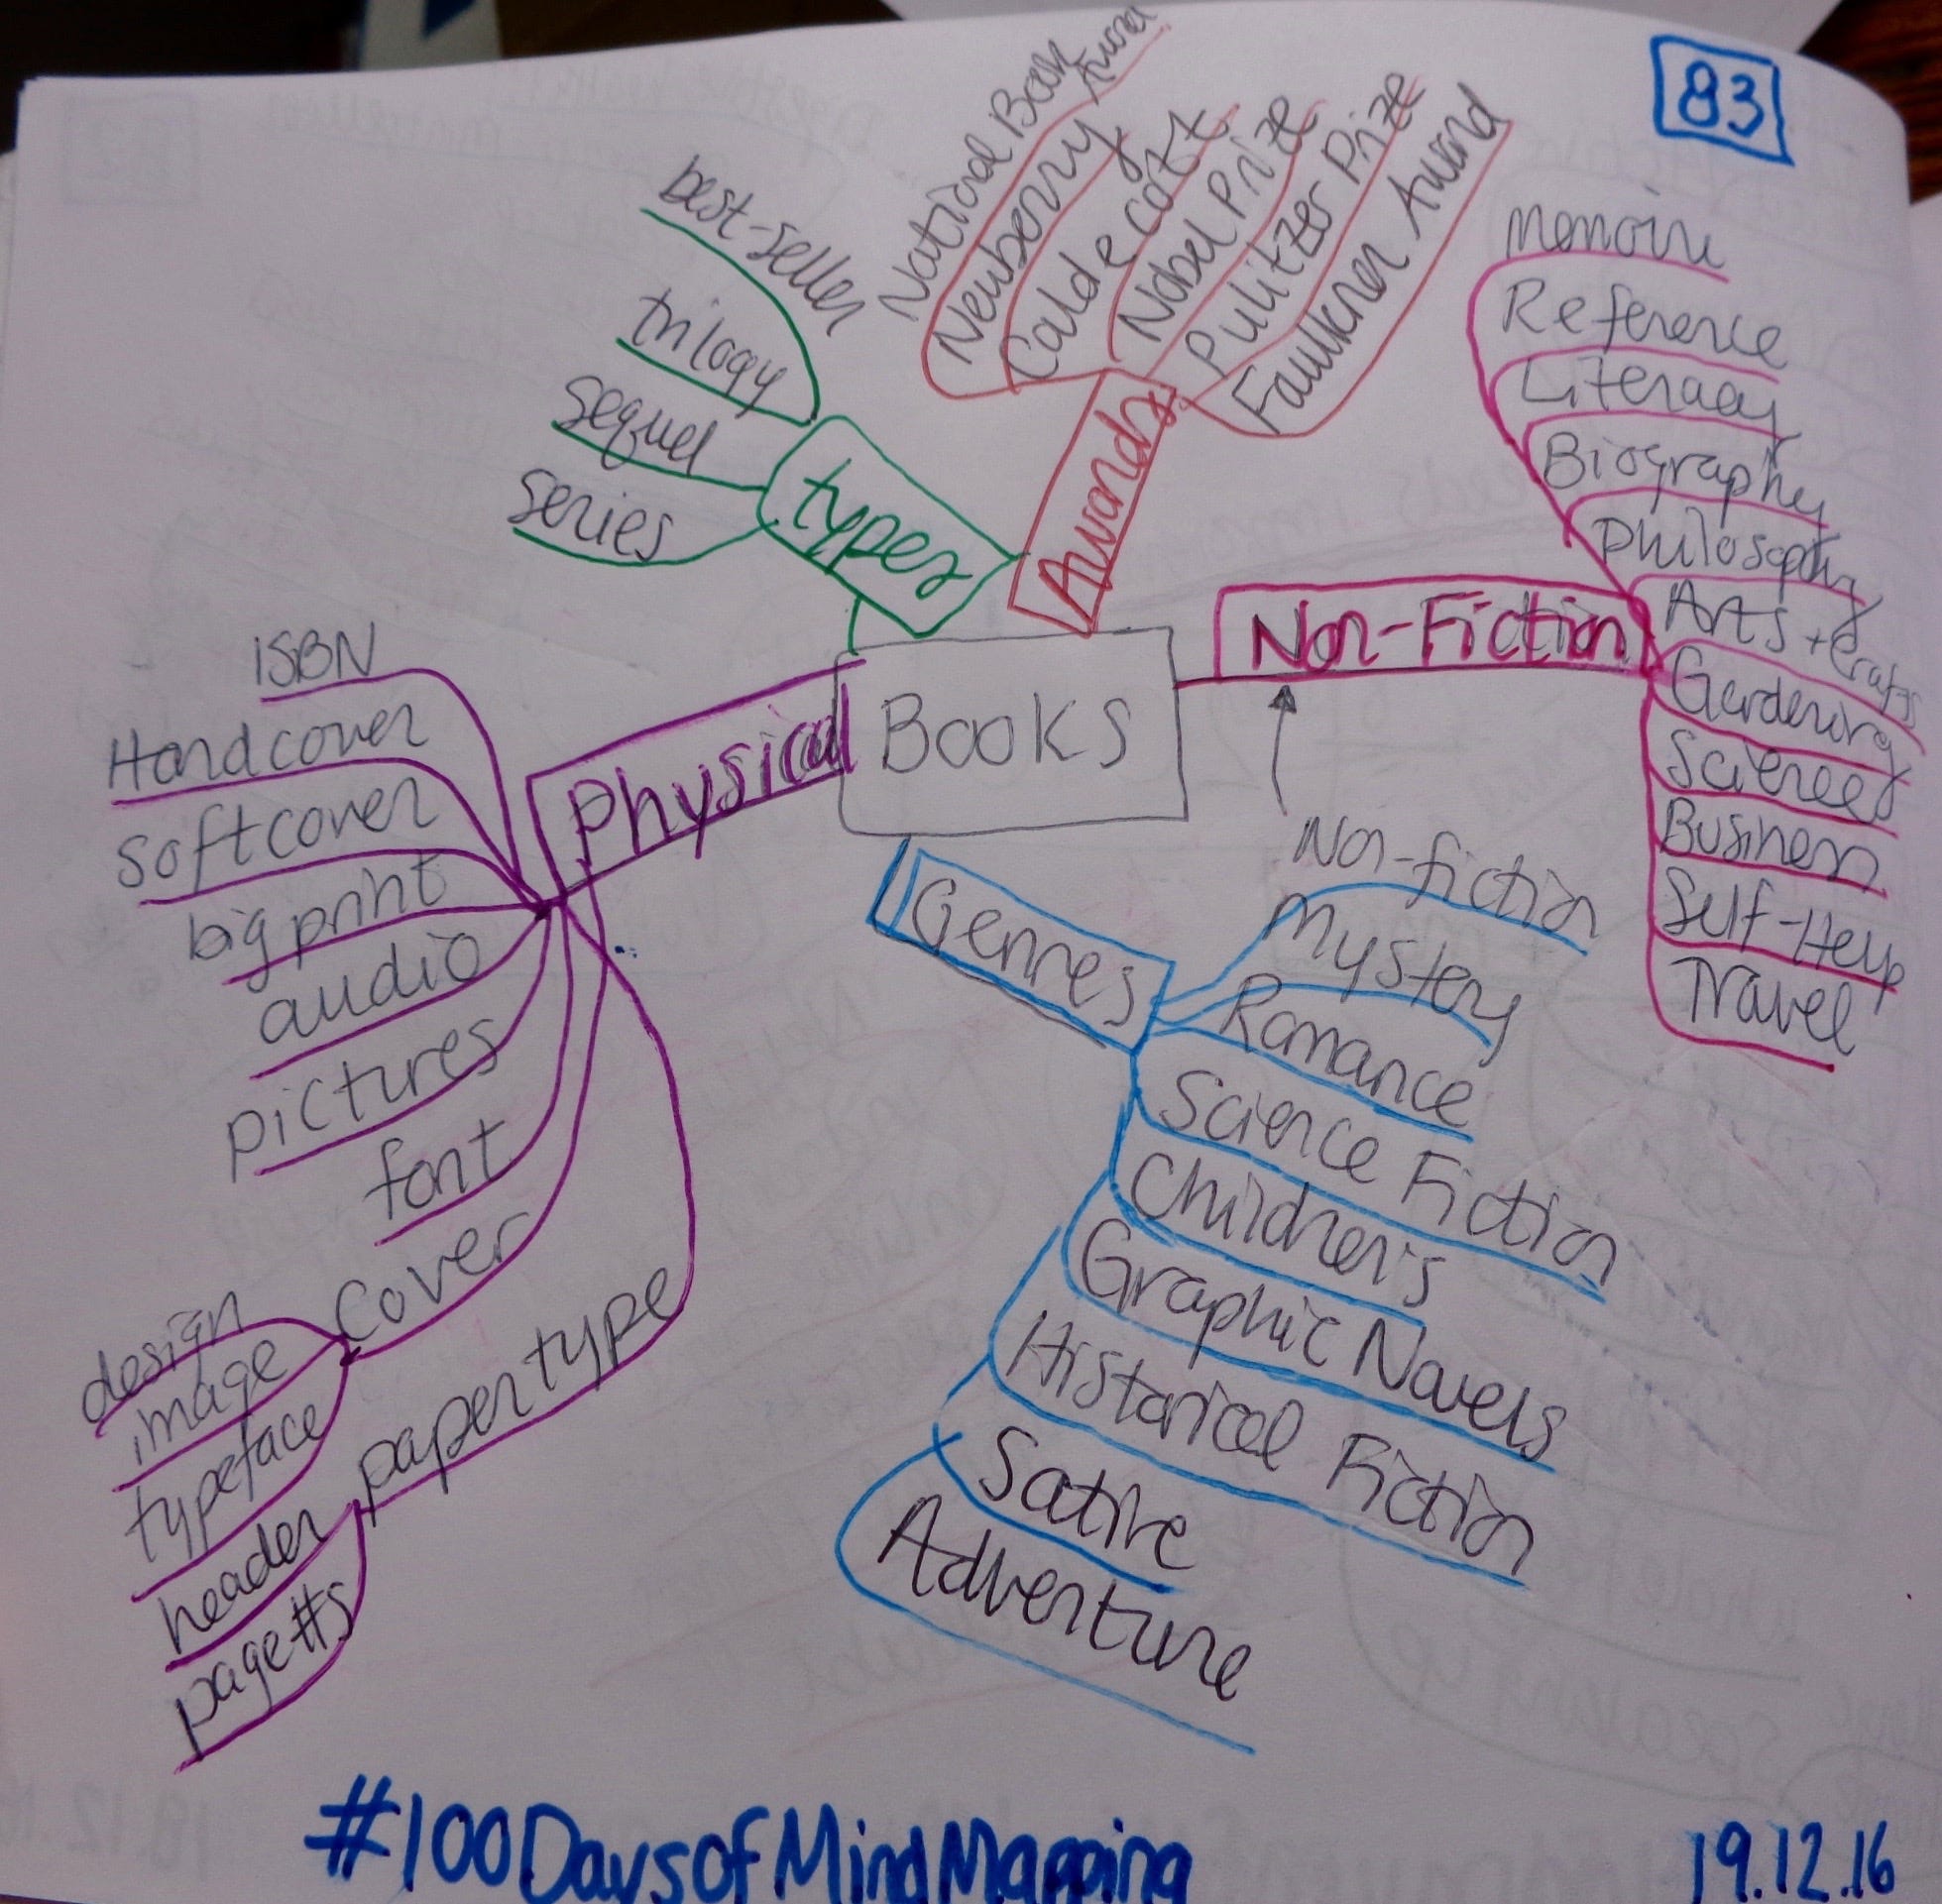 83
National Book Award
Newberry
Caldecott
Nobel Prize
Pulitzer Prize
Faulkner Award
Awards
best-seller
trilogy
sequel
series
types
Memoire
Reference
Literacy
Biography
Philosophy
Arts + Crafts
Gardening
Science
Business
Self-Help
Travel
Non-Fiction
Books
Physical
ISBN
Hardcover
softcover
big print
audio
pictures
font
Cover
design
image
typeface
paper type
header
page #s
Genres
Non-fiction
Mystery
Romance
Science Fiction
Children's
Graphic Novels
Historical Fiction
Satire
Adventure
#100DaysofMindMapping
19.12.16